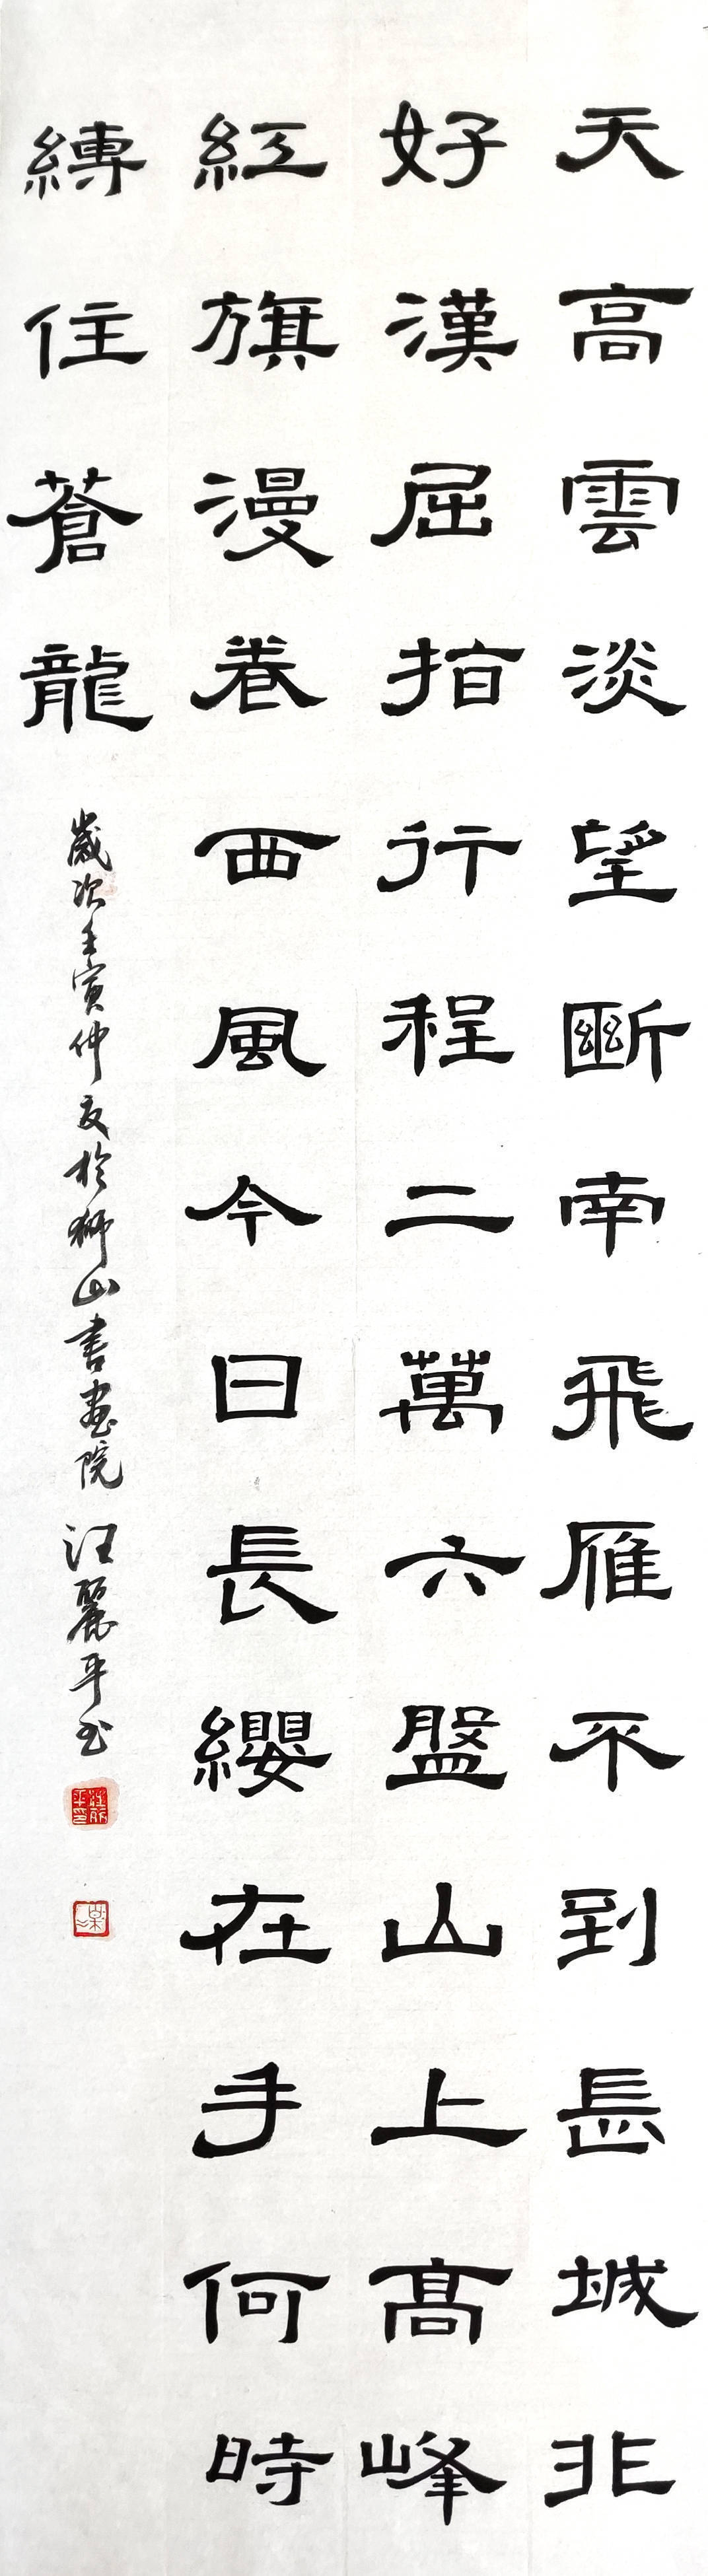 天高雲淡望斷南飛雁不到長城非
好漢屈指行程二萬六盤山上高峰
紅旗漫卷西風今日長纓在手何時
縛住蒼龍
歲次壬寅仲夏於獅山書画院 汪麗平书